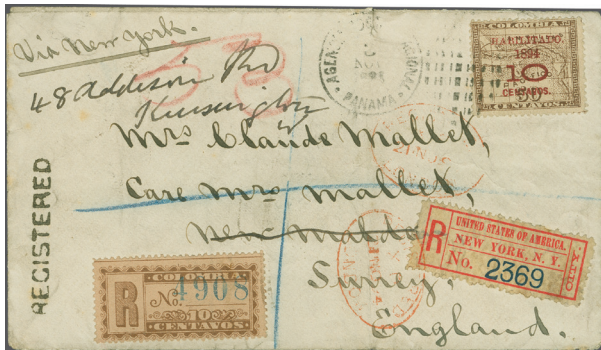 Via New York.
48 Addison Rd
Kensington
Mrs Claude Mallet,
Care Mrs Mallet,
New Malden
Surrey,
England.
REGISTERED
AGEN
PANAMA
NOV
COLOMBIA
HABILITADO.
1894
10
CENTAVOS.
50
CENTAVOS
COLOMBIA
R No. 4908
10
CENTAVOS
UNITED STATES OF AMERICA.
R NEW YORK, N. Y.
No. 2369